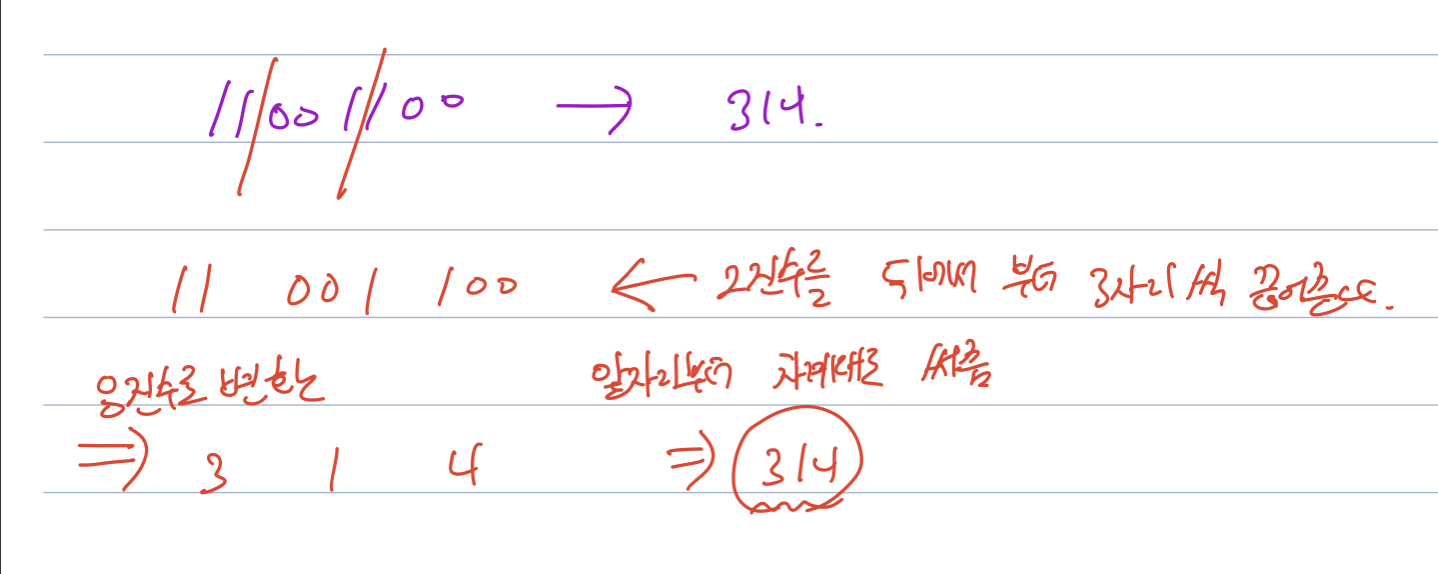 11001100 → 314.
11 001 100 ← 2진수를 뒤에서 부터 3자리 씩 끊어준다.
응진수로 변환 앞자리부터 차례대로 써줌
⇒ 3 1 4 ⇒ 314